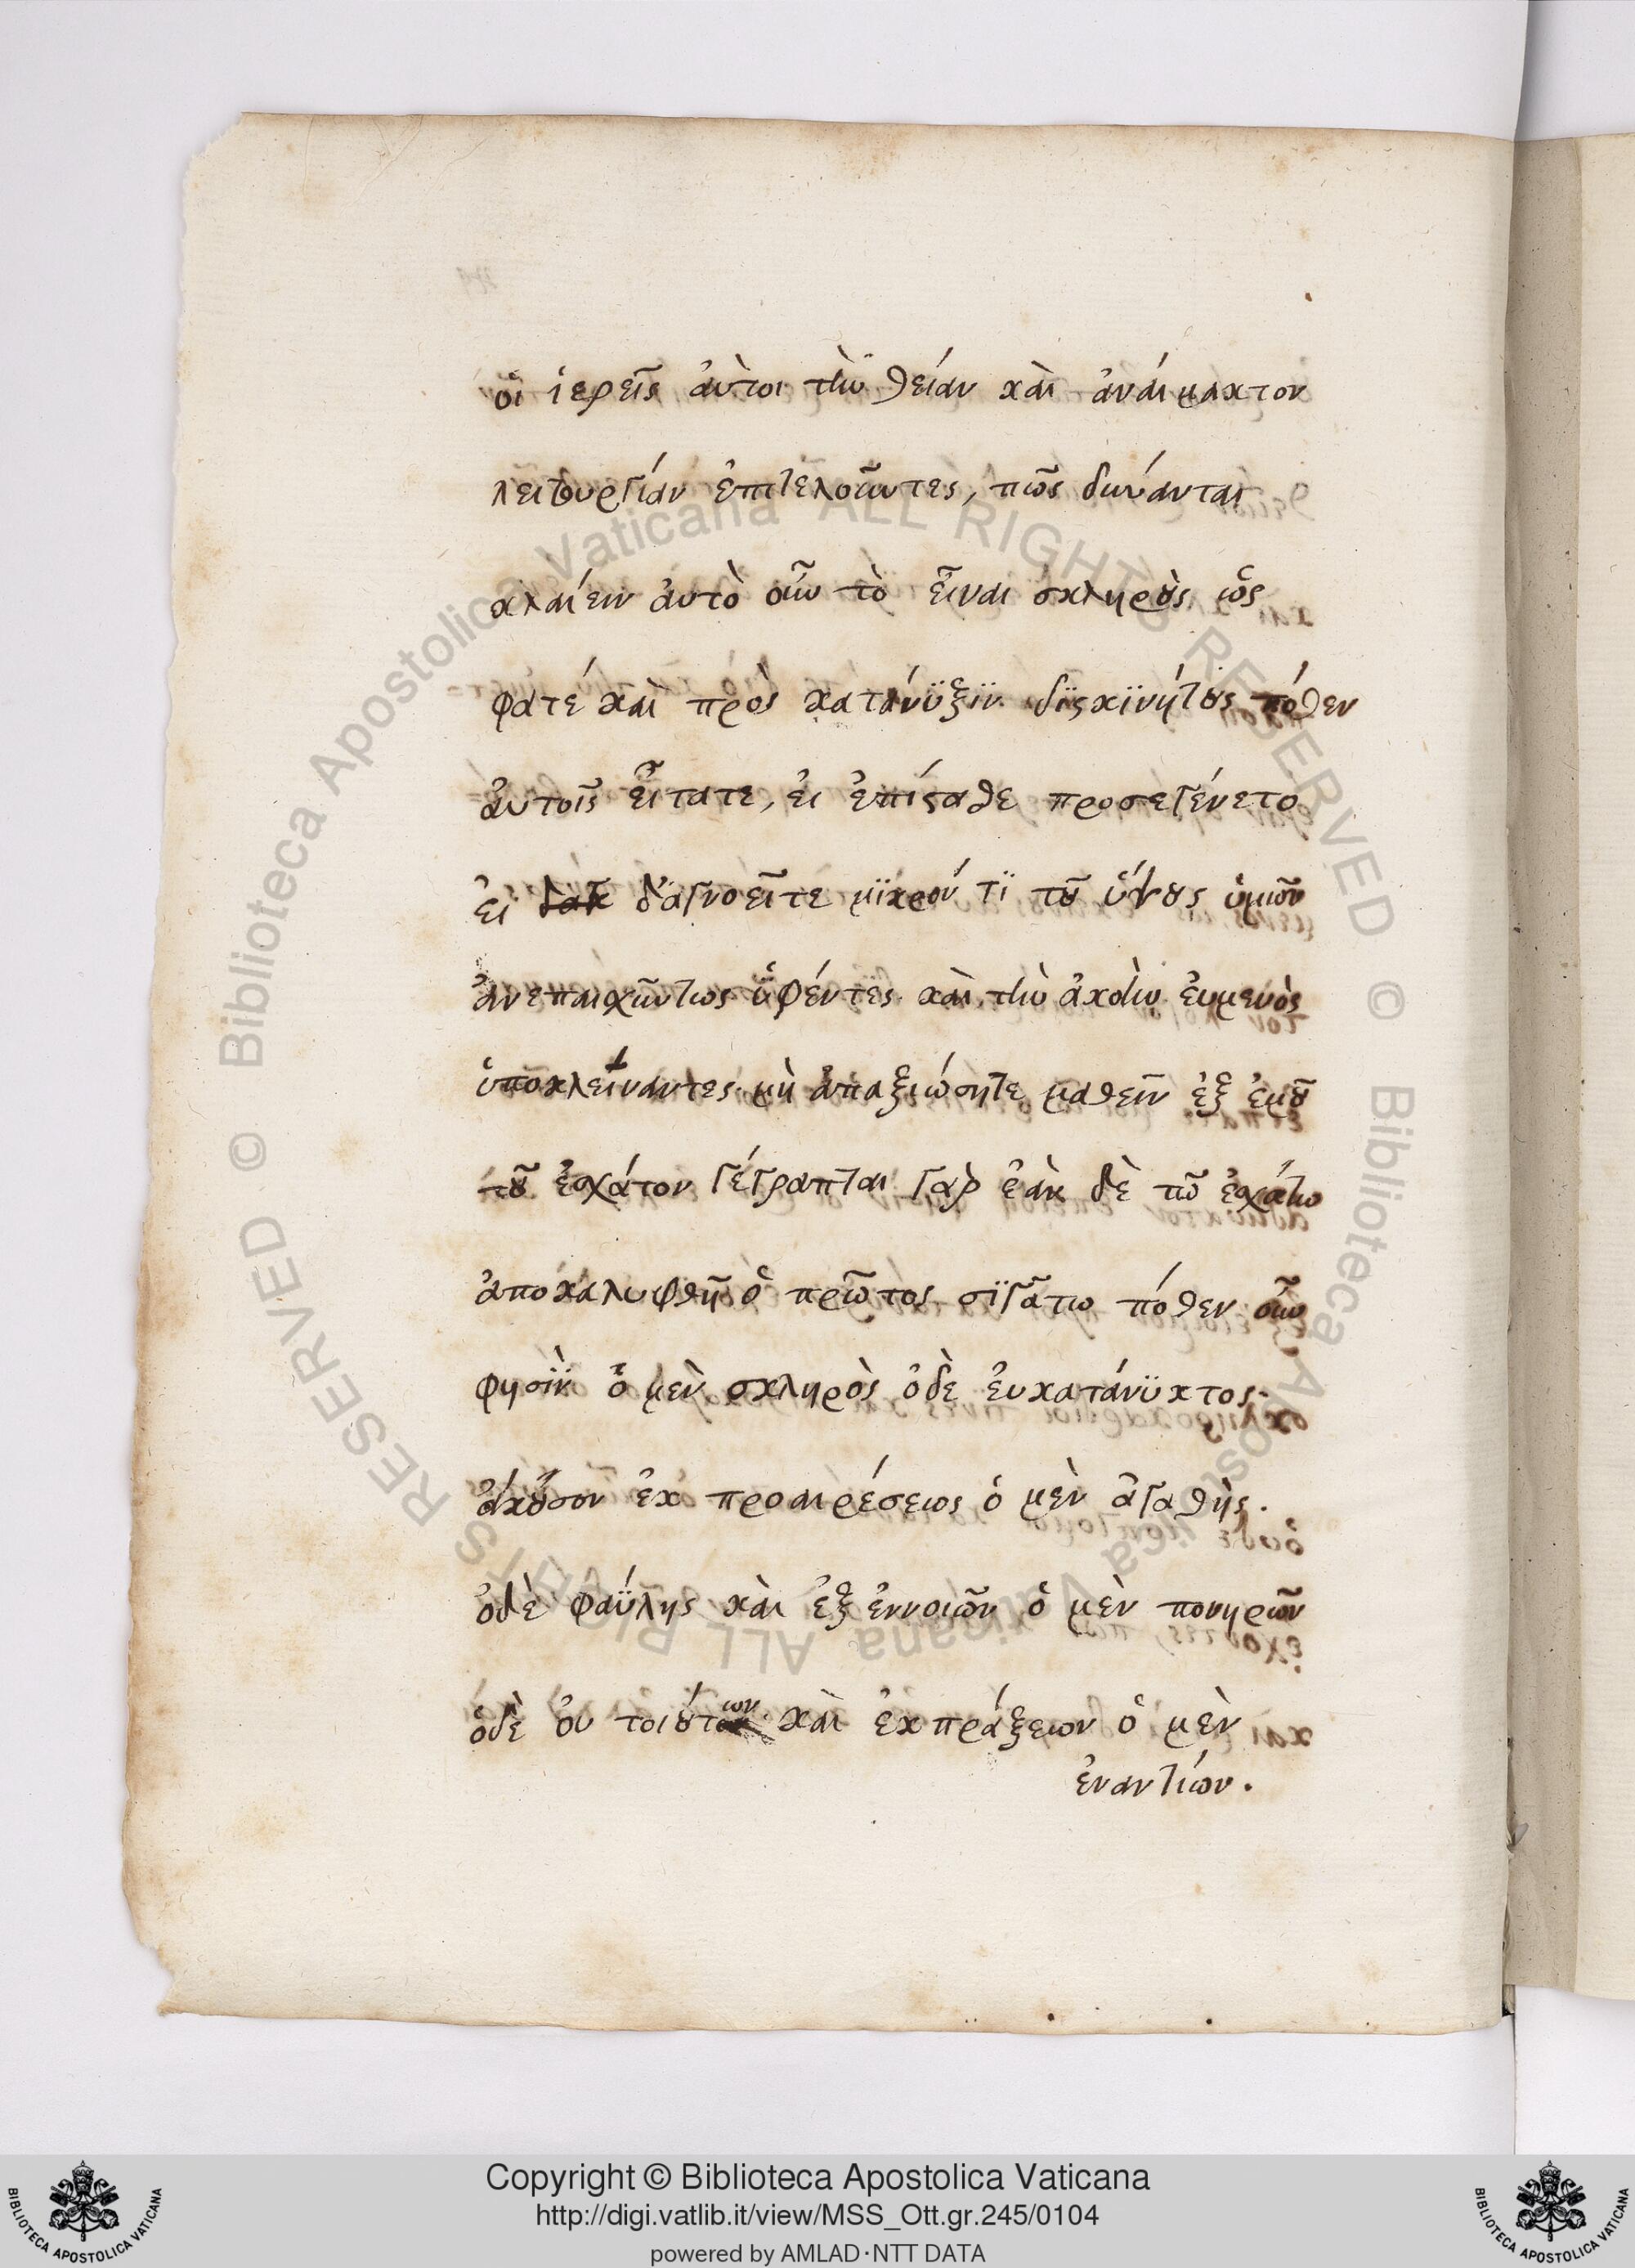 οἱ ἱερεῖς ἀυτοι τὴν θείαν καὶ ἀνάιμακτον
λειτουργίαν ἐπιτελοῦντες, πῶς δύνανται
κλαίειν ἀυτὸ οὖν τὸ εἶναι σκληροὺς ὥς
φατέ καὶ πρὸς κατάνϋξϊν δϊςκϊνήτους πόθεν
ἀυτοῖς εἴπατε, ἐι ἐπίςαθε προσεγένετο
ἐι δ'ἀγνοεῖτε μϊκρόν τϊ τοῦ ὕψους ὑμῶν
ἀνεπαισχύντως ὑφέντες καὶ τὴν ἀκοὴν ἐυμενὸς
ὑποκλείναντες μὴ ἀπαξιώσητε μαθεῖν ἐξ ἐμοῦ
τοῦ ἐσχάτον γέγραπται γὰρ ἐὰν δὲ τῶ ἐσχάτω
ἀποκαλυφθῇ ὁ πρῶτος σϊγάτω πόθεν οὖν
φησϊν ὁ μὲν σκληρὸς ὁδὲ ἐυκατάνϋκτος
ἄκουσον ἐκ προαιρέσεως ὁ μὲν ἀγαθῆς.
ὁδὲ φαύλης καὶ ἐξ ἐννοιῶν ὁ μὲν πονηρῶν
ὁδὲ ὀυ τοιούτων καὶ ἐκ πράξεων ὁ μὲν
ἐναντίων.
Copyright © Biblioteca Apostolica Vaticana
http://digi.vatlib.it/view/MSS_Ott.gr.245/0104
powered by AMLAD·NTT DATA
BIBLIOTECA APOSTOLICA VATICANA
BIBLIOTECA APOSTOLICA VATICANA
© Biblioteca Apostolica Vaticana ALL RIGHTS RESERVED
© Biblioteca Apostolica Vaticana ALL RIGHTS RESERVED